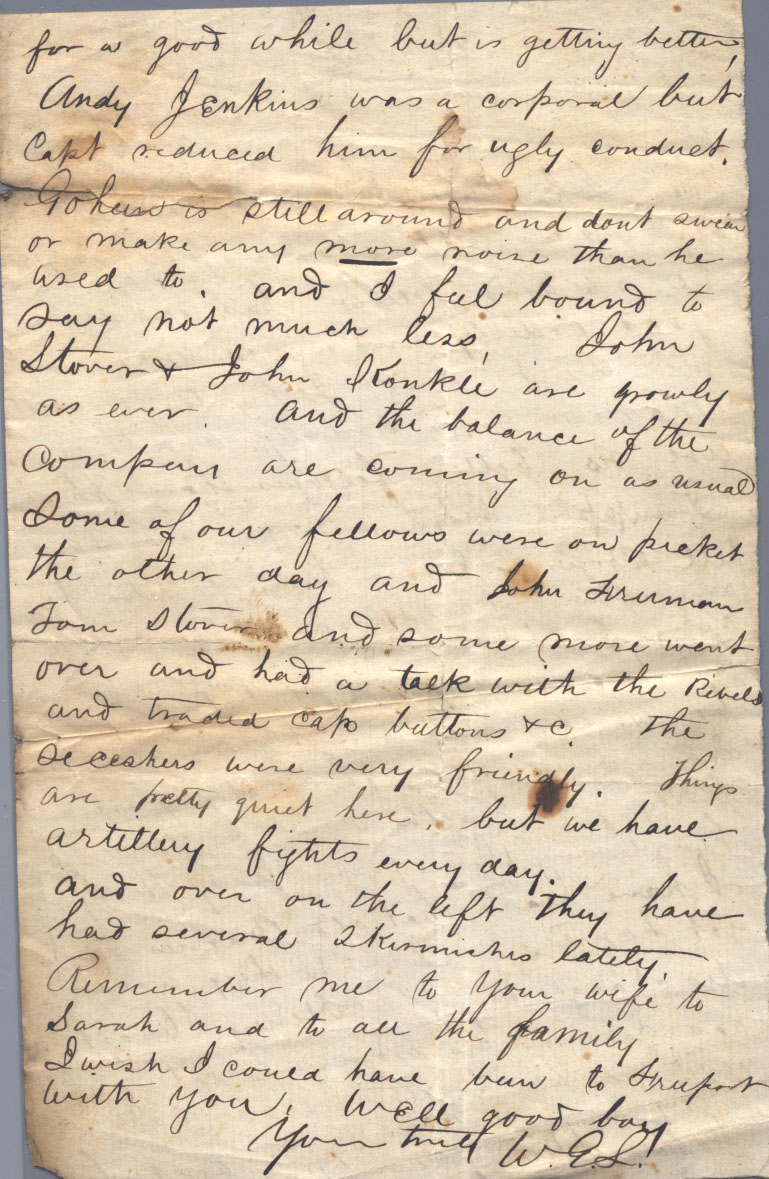 for a good while but is getting better,
Andy Jenkins was a corporal but
Capt reduced him for ugly conduct.
is still around and dont swear
or make any more noise than he
used to. and I feel bound to
say not much less, John
Stover & John Konkle are growly
as ever. and the balance of the
Company are coming on as usual
Some of our fellows were on picket
the other day and John Fruman
Tom Stover and some more went
over and had a talk with the Rebels
and traded cap buttons &c the
seceshers were very friendly. Things
are pretty quiet here. but we have
artillery fights every day.
and over on the left they have
had several skirmishes lately.
Remember me to your wife to
Sarah and to all the family
I wish I could have been to Fruport
with you. Well good bay
Your truly W.E.S.